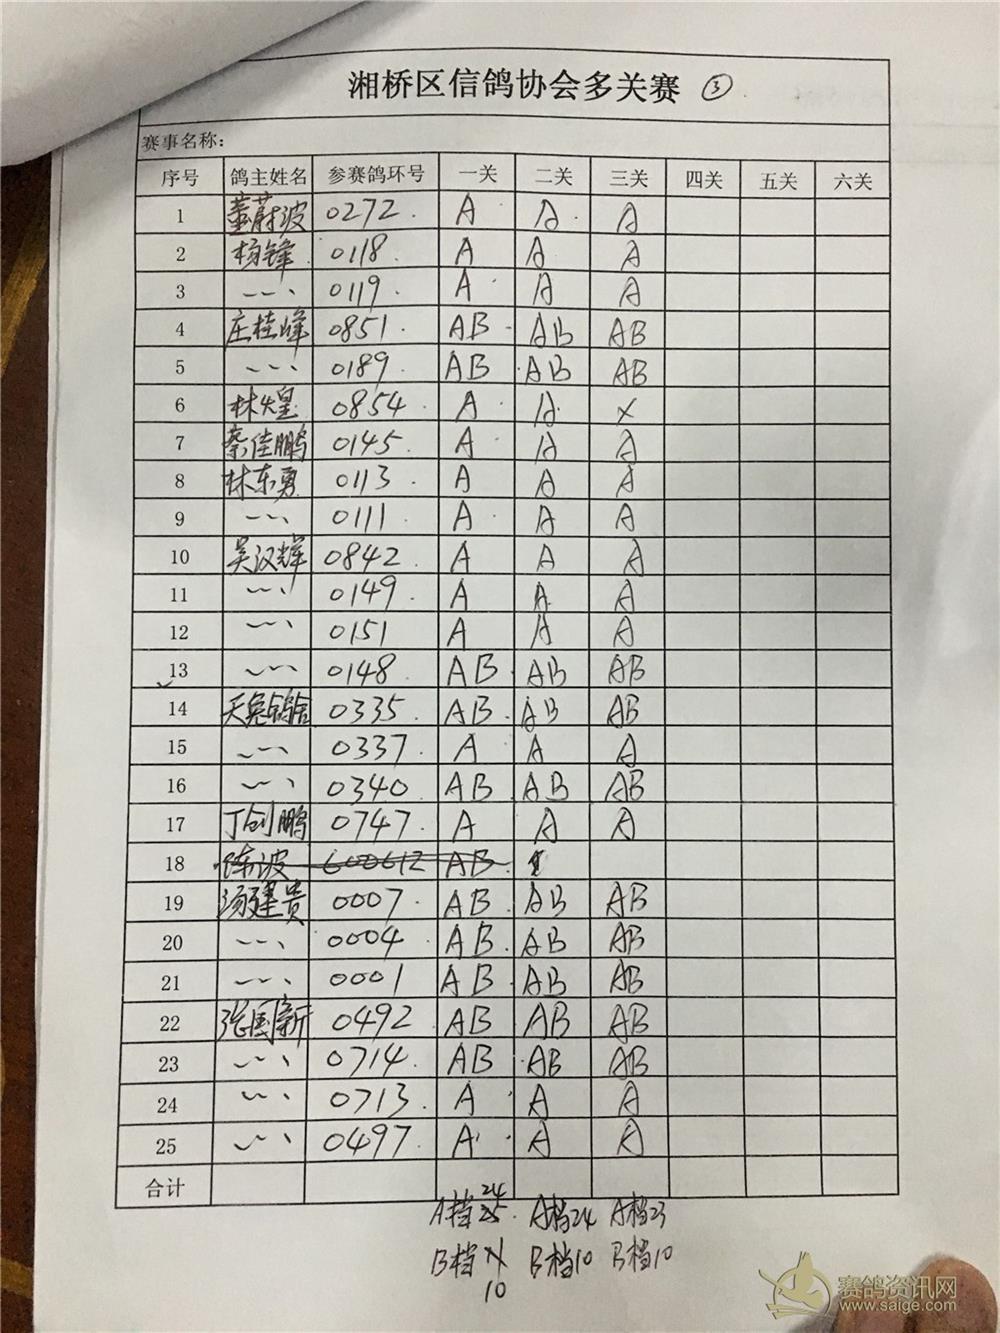 湘桥区信鸽协会多关赛 ③
赛事名称：
序号 鸽主姓名 参赛鸽环号 一关 二关 三关 四关 五关 六关
1 董蔚波 0272 A A A
2 杨锋 0118 A A A
3 〃 0119 A A A
4 庄桂峰 0851 AB AB AB
5 〃 0189 AB AB AB
6 林火皇 0854 A A ×
7 蔡佳鹏 0145 A A A
8 林东勇 0113 A A A
9 〃 0111 A A A
10 吴汉辉 0842 A A A
11 〃 0149 A A A
12 〃 0151 A A A
13 〃 0148 AB AB AB
14 天兔鸽舍 0335 AB AB AB
15 〃 0337 A A A
16 〃 0340 AB AB AB
17 丁创鹏 0747 A A A
18 陈波 600612 AB
19 汤建贵 0007 AB AB AB
20 〃 0004 AB AB AB
21 〃 0001 AB AB AB
22 张国新 0492 AB AB AB
23 〃 0714 AB AB AB
24 〃 0713 A A A
25 〃 0497 A A A
合计
24
A档25 A档24 A档23
B档11 B档10 B档10
10
赛鸽资讯网
www.saige.com